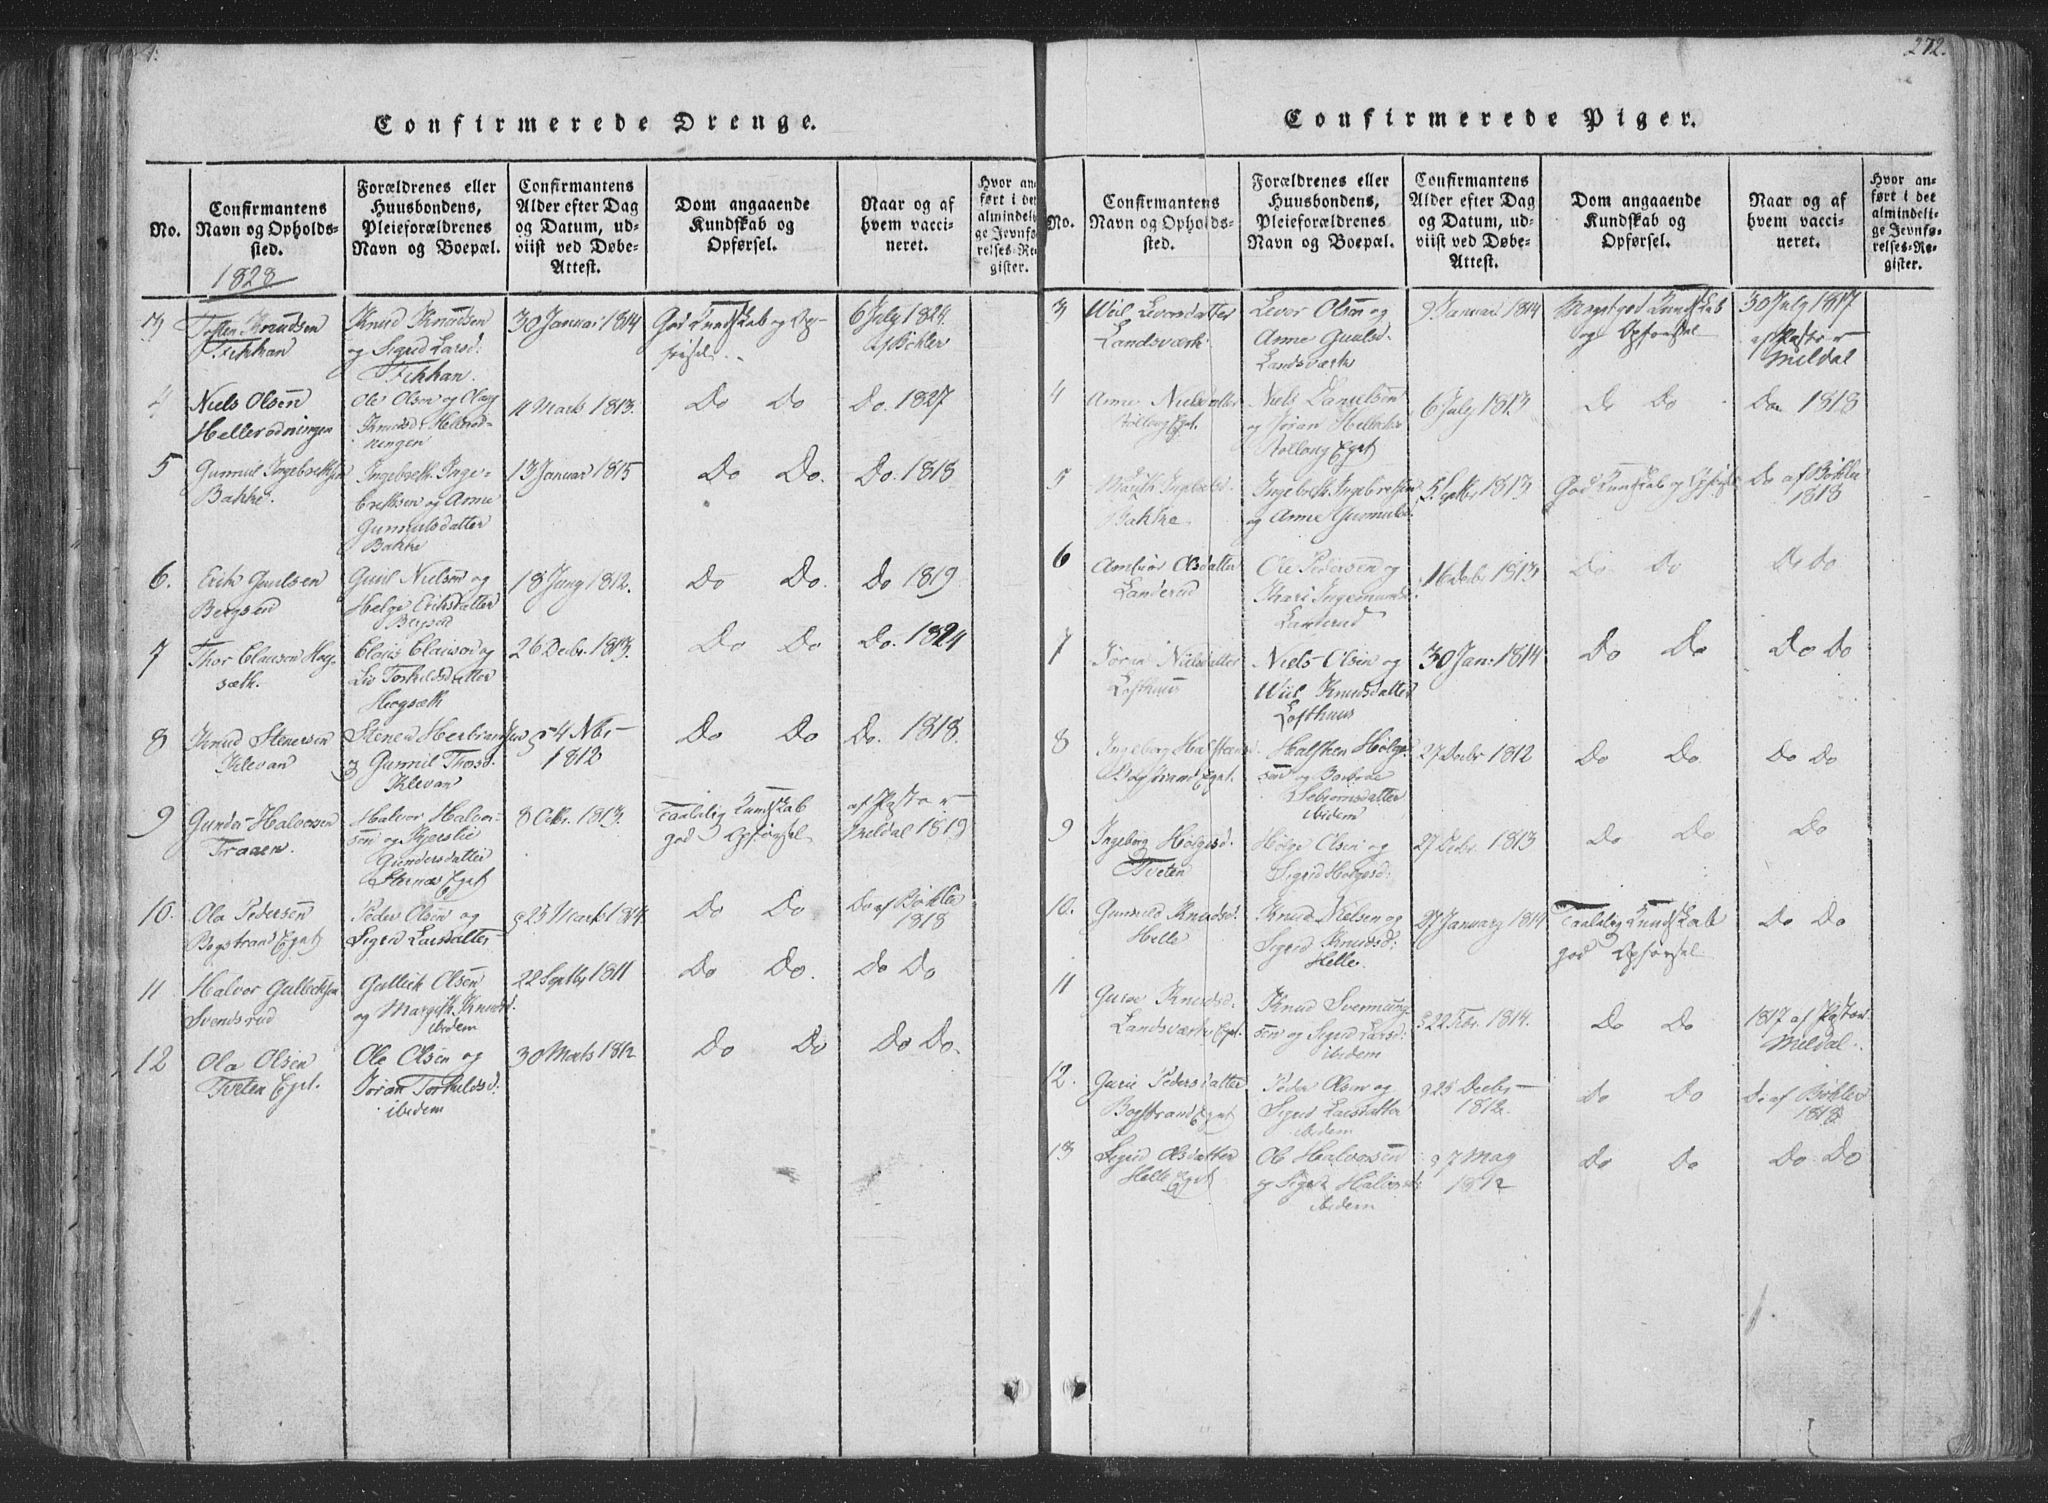 4.
Confirmerede Drenge.
No.
Confirmantens
Navn og Opholds-
sted.
1828
Forældrenes eller
Huusbondens,
Pleieforældrenes
Navn og Boepæl.
Confirmantens
Alder efter Dag
og Datum, ud-
viist ved Døbe-
Attest.
Dom angaaende
Kundskab og
Opførsel.
Naar og af
hvem vacci-
neret.
Hvor an-
ført i det
almindeli-
ge Jevnfø-
relses-Re-
gister.
3
Tosten Knudsen
Fikkan
Knud Knudsen
og Sigrid Larsd:
Fikkan.
30 Januar 1814
God Kundskab og Op-
førsel
6 July 1824
af Bøhler
4
Niels Olsen
Hellerødningen
Ole Olsen og
Knudsd. Hellerød-
ningen
11 Marts 1813.
Do Do
Do. 1827
5
Gunnul Ingebrethsen
Bakke.
Ingebreth Inge-
brethsen og Anne
Gunnulsdatter
Bakke
13 Januar 1815
Do Do.
Do. 1818
6.
Erik Guulsen
Bergsen
Guul Nielsen og
Helge Eriksdatter
18 Juny 1812.
Do Do.
Do 1819
7
Thor Clausen Hog-
sæth.
Claus Clausen og
Liv Torkildsdatter
Hogsæth
26 Decbr. 1813.
Do Do
Do. 1824
8
Knud Stenersen
Klevan
Stener Herbrandsen
og Gunnil Thorsd.
Klevan
4 Nbr.
1812
Do Do
Do. 1818.
9
Gunder Halvorsen
Traaen.
Halvor Halvor-
sen og Kjerstie
Gundersdatter
Sternæs Eget
8 Octbr. 1813.
Taalelig Kundskab
god Opførsel
af Pastor
Meldal 1819
10.
Ola Pedersen
Bogstrand Eget
Peder Olsen og
Sigrid Larsdatter
23 Marts 1814
Do Do
Do af Bøhler
1818
11
Halvor Gullechsen
Svendsrud
Gullich Olsen
og Margith Knudsd.
ibidem
22 Septbr 1811
Do Do.
Do Do
12
Ola Olsen
Tveten Eget.
Ole Olsen og
Jøran Torkildsd.
ibidem
30 Marts 1812
Do Do
Do Do.
272.
Confirmerede Piger.
No.
Confirmantens
Navn og Opholds-
sted.
Forældrenes eller
Huusbondens,
Pleieforældrenes
Navn og Boepæl.
Confirmantens
Alder efter Dag
og Datum, ud-
viist ved Døbe-
Attest.
Dom angaaende
Kundskab og
Opførsel.
Naar og af
hvem vacci-
neret.
Hvor an-
ført i det
almindeli-
ge Jevnfø-
relses-Re-
gister.
3
Wiil Levorsdatter
Landsværk
Levor Olsen og
Anne Guulsd.
Landsværk
9 Januar 1814
Meget god Kundskab
og Opførsel
30 July 1817
af Pastor
Meldal
4
Anne Nielsdatter
Niels Danielsen
og Jøran Hellechsd
6 July 1813
Do Do
Do 1818
5
Bakke
Ingebreth Ingebrethsen
og Anne Gunnulsd.
5 Septbr 1813
God Kundskab og Opførsel
Do af Bøhler
1818
6
Ambior Olsdatter
Landerud
Ole Pedersen og
Kari Ingemundsd.
Landerud
16 Decbr 1813
Do Do
Do Do
7
Jøran Nielsdatter
Lofthuus
Niels Olsen og
Wiil Knudsdatter
Lofthuus
30 Jan: 1814
Do Do
Do Do
8
Ingeborg Halstensd
Bogstrand Eget.
Halsten Holge-
sen og Barbroe
ibidem
27 Decbr 1812
Do Do
Do Do
9
Ingeborg Holgesd.
Tveten
Holge Olsen og
Sigrid Holgesd:
27 Decbr. 1813
Do Do
Do
10.
Gunild Knudsd.
Helle
Knud Nielsen og
Sigrid Knudsd:
Helle.
27 January 1814
Taalelig Kundskab
god Opførsel
Do Do
11
Guroe Knudsd.
Landsværk Eget.
Knud Svennung-
sen og Sigrid Larsd:
ibidem
22 Febr. 1814.
Do Do
1817 af Pastor
Meldal.
12.
Gurie Pedersdatter
Bogstrand Eget
Peder Olsen og
Sigrid Larsdatter
ibidem
25 Decbr
1812.
Do Do
Do af Bøhler
1818
13
Sigrid Olsdatter
Helle Eget
Ole Halvorsen
og Sigrid Halvorsd:
ibidem
7 May
1812
Do Do
Do Do